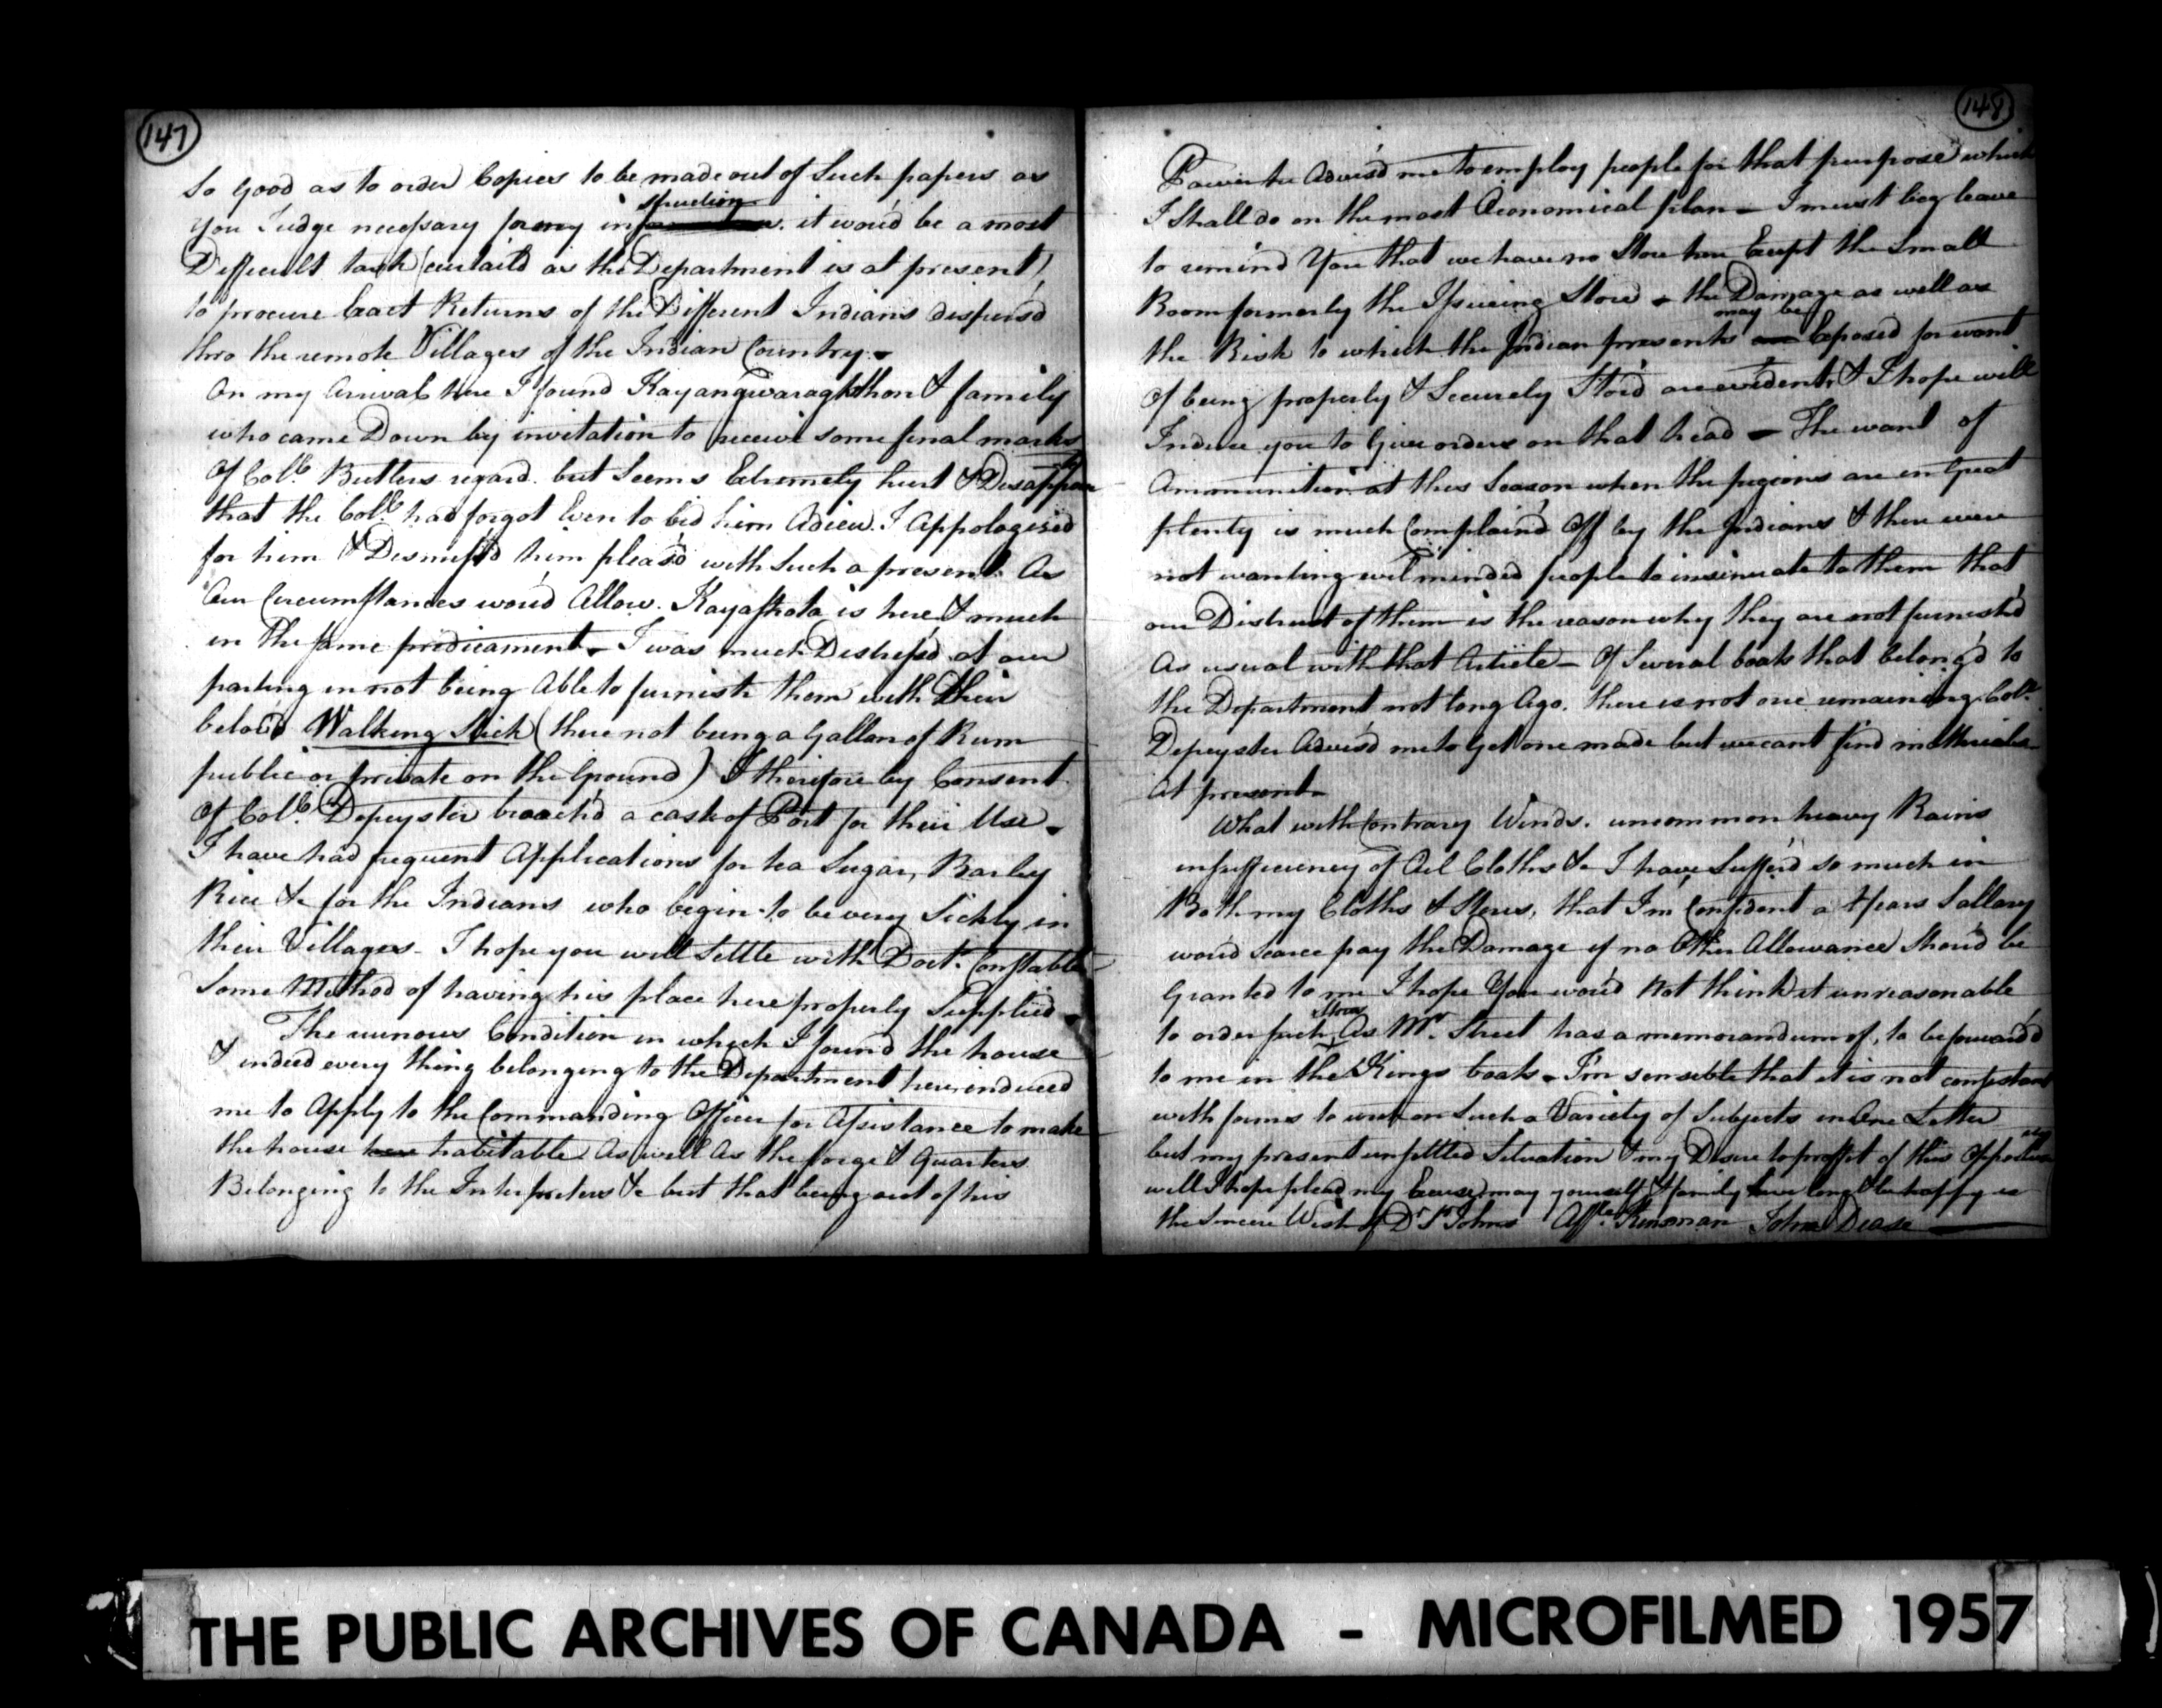 147
So Good as to order Copies to be made out of Such papers as
you Judge necessary for my inspection. it wou'd be a most
Difficult task (curtail'd as the Department is at present)
to procure Exact Returns of the Different Indians dispers'd
thro the remote Villages of the Indian Country.
On my Arrival here I found Kayangwaraghthon & family
who came Down by invitation to receive some final marks
Of Col.l Butlers regard. but Seems Extremely hurt &
that the Col.l had forgot Even to bid him Adieu. I Appologised
for him & Dismiss'd him pleas'd with Such a present As
Our Circumstances wou'd Allow. Kayashota is here & much
in the same predicament. I was much Distress'd at our
parting in not being Able to furnish them with their
belov'd Walking Stick (there not being a Gallon of Rum
public or private on the Ground) I therefore by Consent
Of Col.l Depeyster broach'd a cask of Port for their Use.
I have had frequent Applications for tea Sugar, Barley
Rice &c for the Indians who begin to be very Sickly in
their Villages. I hope you will Settle with Doct.r Constable
Some Method of having his place here properly Supplied.
The ruinous Condition in which I found the house
& indeed every thing belonging to the Department here induced
me to Apply to the Commanding Officer for Assistance to make
the house here habitable As well As the forge & Quarters
Belonging to the Interpreters &c but that being out of his
148
Power he Advis'd me to employ people for that purpose which
I Shall do on the most Oconomical plan - I must beg leave
to remind You that we have no Store here Except the Small
Room formerly the Issueing Store & the Damage as well as
the Risk to which the Indian presents may be Exposed for want
Of being properly & Securely Stor'd are evident, & I hope will
Induce you to Give orders on that head - The want of
Ammunition at this Season when the pigeons are in Great
plenty is much Complain'd Off by the Indians & there were
not wanting evil minded people to insinuate to them that
our Distrust of them is the reason why they are not furnish'd
As usual with that Article - Of Several boats that belong'd to
the Department not long Ago. there is not one remaining. Col.l
Depeyster Advis'd me to Get one made but we cant find matterials
At present.
What with Contrary Winds. uncommon heavy Rains
insufficiency of Oil Cloths &c I have Suffer'd so much in
Both my Cloths & Stores, that I'm Confident a Years Sallary
wou'd Scarce pay the Damage if no Other Allowance Shou'd be
Granted to me I hope You wou'd Not think it unreasonable
to order such Stores As Mr. Street has a memorandum of, to be forward'd
to me in the Kings boats. I'm sensible that it is not consistant
with forms to on Such a Variety of Subjects in One Letter
but my present unsettled Situation & my Desire to proffit of this Opportunity
will I hope plead my Excuse, may yourself & family live long & be happy is
the Sincere Wish of Dr Sr Johns Aff.te Kinsman John Dease
THE PUBLIC ARCHIVES OF CANADA - MICROFILMED 1957